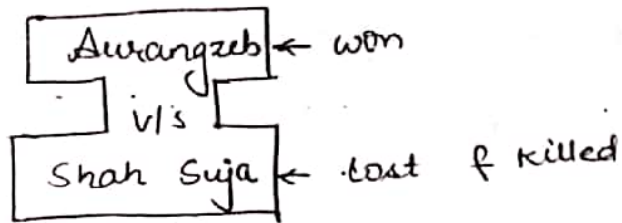 Aurangzeb ← won
v/s
Shah Suja ← lost & killed